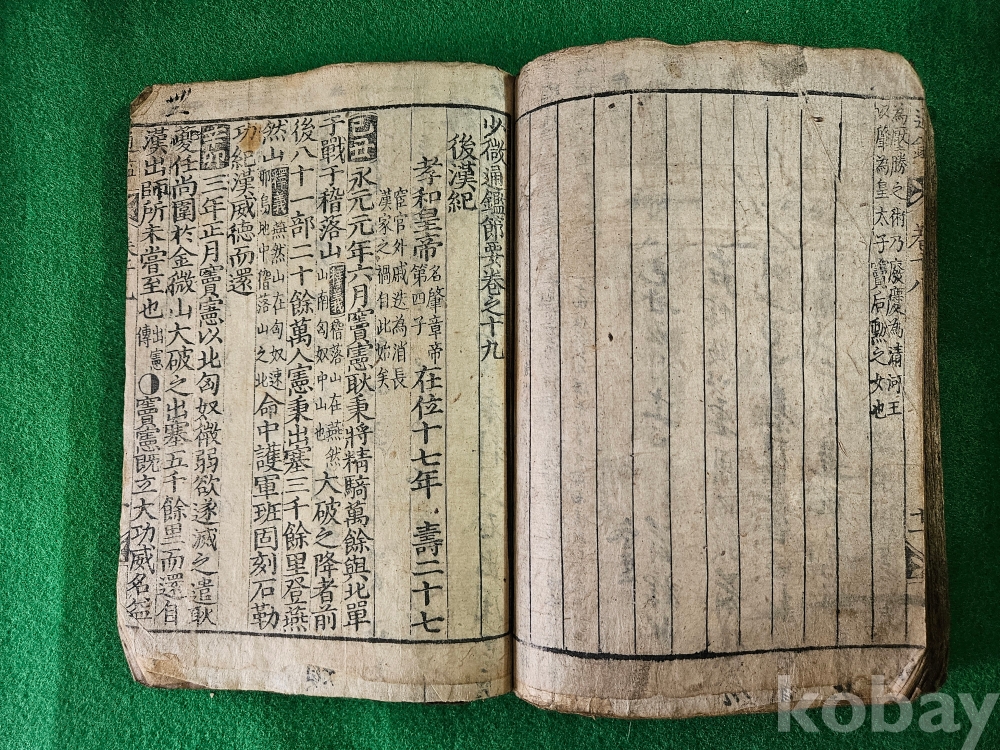 通鑑 卷十八
為厭勝之術乃廢慶為清河王
以肇為皇太子竇后勳之女也
少微通鑑節要卷之十九
後漢紀
孝和皇帝名肇章帝第四子在位十七年壽二十七
宦官外戚迭為消長
漢家之禍自此始矣
己丑永元元年六月竇憲耿秉將精騎萬餘與北單
于戰于稽落山釋義稽落山在燕然山南匈奴中山也大破之降者前
後八十一部二十餘萬人憲秉出塞三千餘里登燕
然山釋義燕然山在匈奴速邪烏地中稽落山之北命中護軍班固刻石勒
功紀漢威德而還
辛卯三年正月竇憲以北匈奴微弱欲遂滅之遣耿
夔任尚圍於金微山大破之出塞五千餘里而還自
漢出師所未嘗至也出憲傳竇憲既立大功威名益
kobay